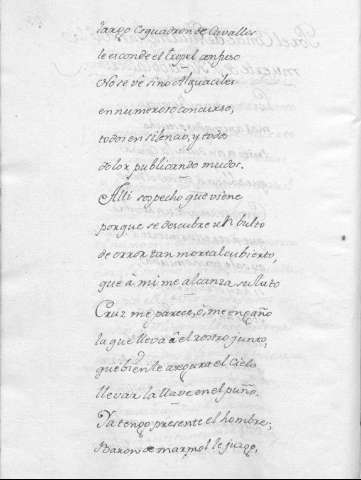 largo esquadron de Cavallos
le esconde el tropel confuso
No se vè sino Alguaciles
en numeroso concurso,
todos en silencio, y todo
dolor publicando mudos.
Alli sospecho que viene
porque se descubre un bulto
de orror tan mortal cubierto,
que à mi me alcanza su luto
Cruz me parece, ò, me engaño
la que lleva â el rostro junto,
que bien le asegura el Cielo
llevar la llave en el puño.
Ya tengo presente el hombre,
Baron de marmol le juzgo,